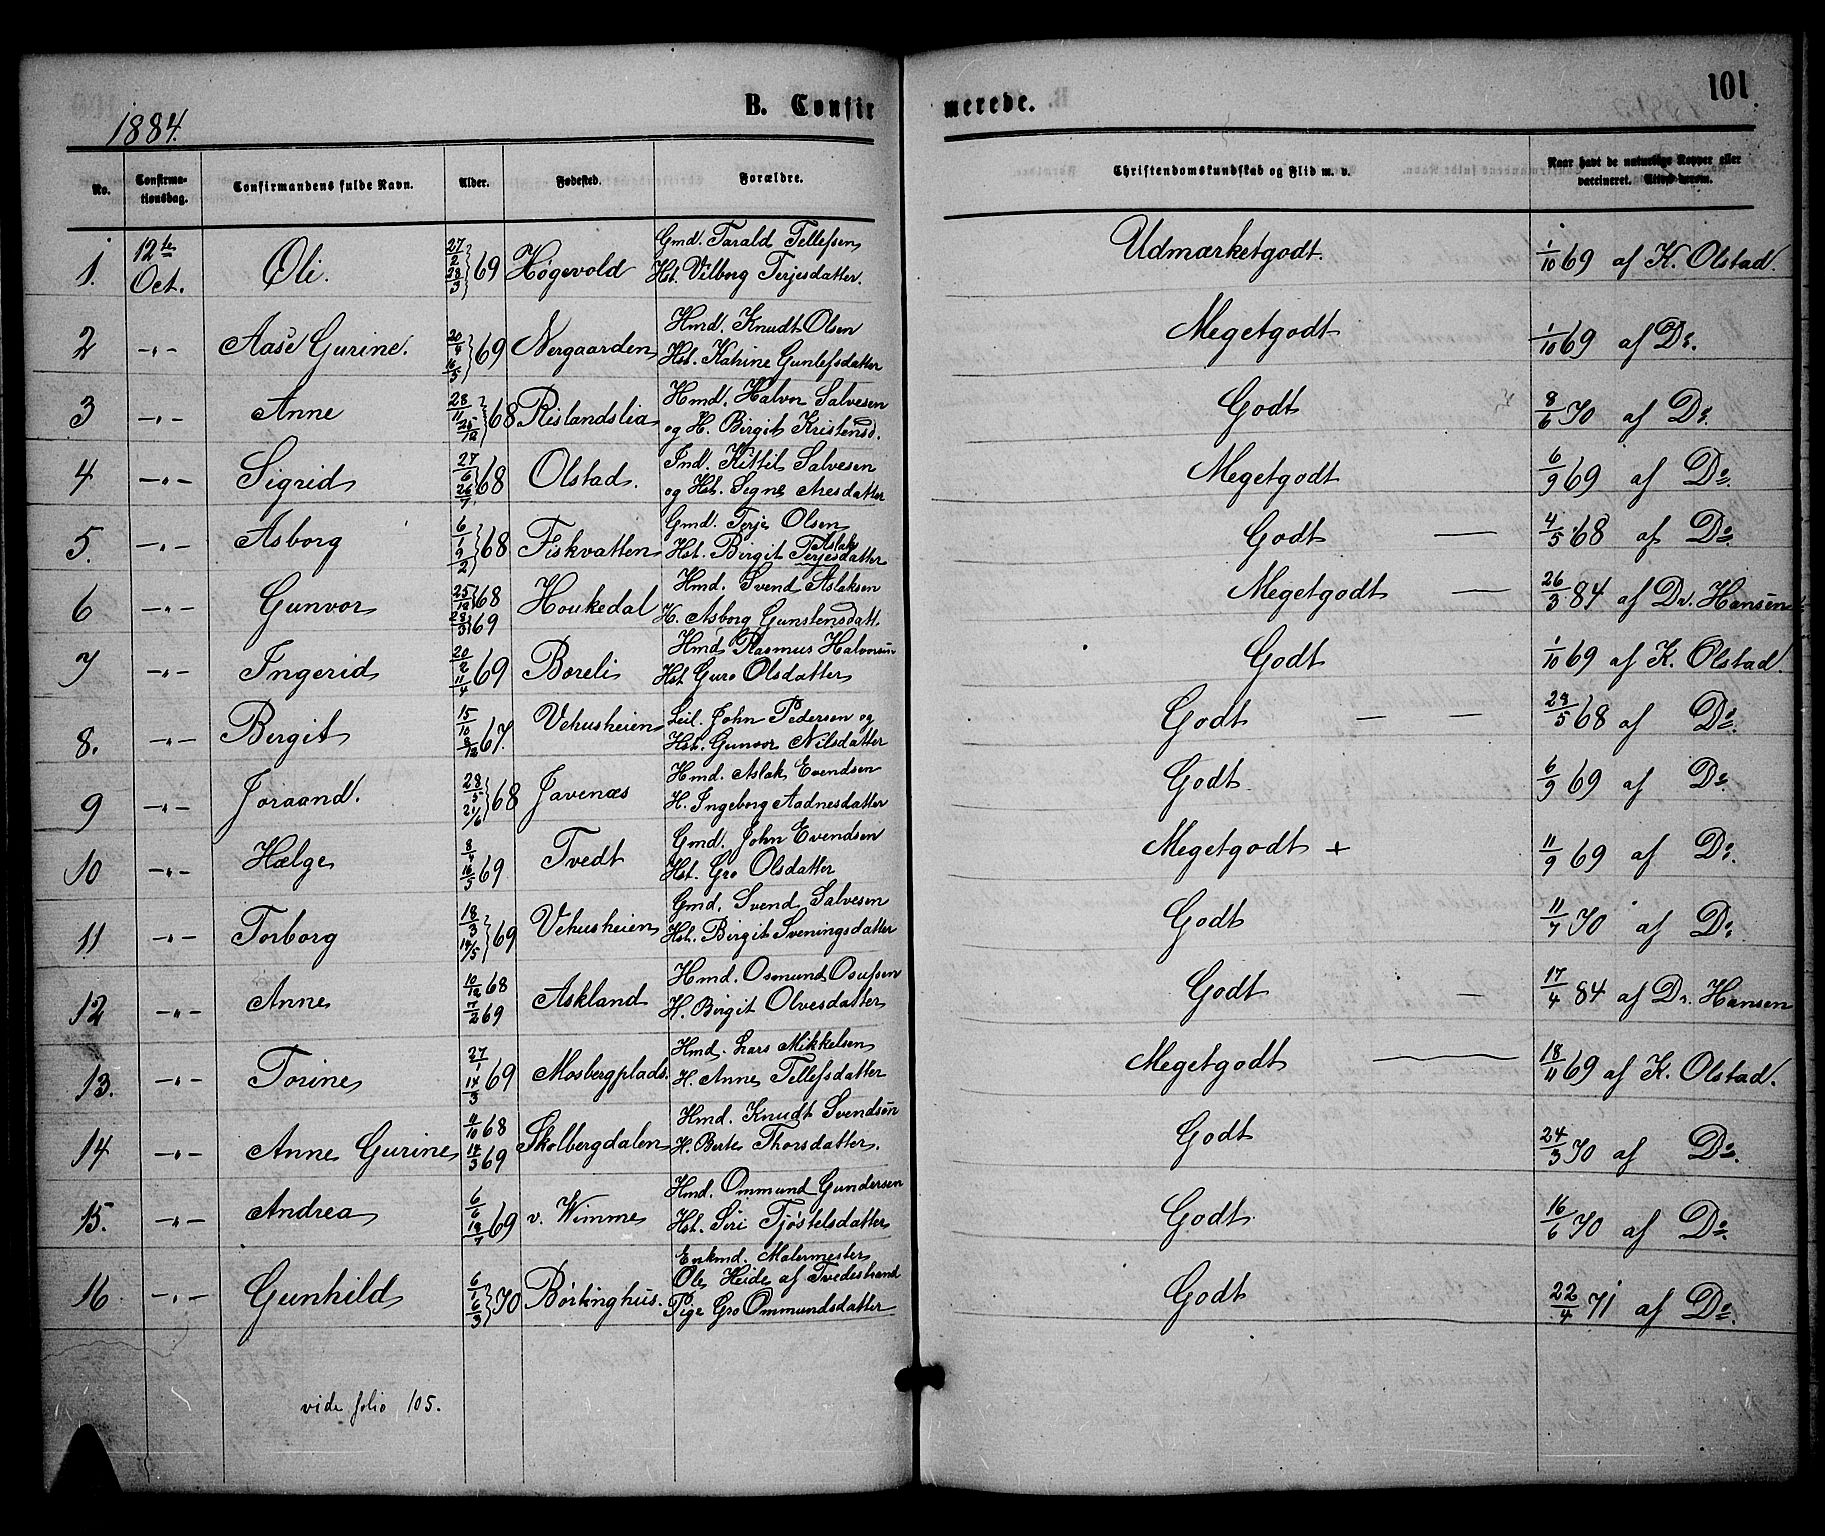 1884.
B. Confirmerede.
101
No. Confirmationsdag. Confirmandens fulde Navn. Alder. Fødested. Forældre. Christendomskundskab og Flid m. v. Naar havt de naturlige Kopper eller vaccineret. Attest derom.
1. 12te Oct. Oli. 27/2 28/3 } 69 Høgevold Gmd. Tarald Tellefsen Hst. Vilborg Terjesdatter. Udmærketgodt 1/10 69 af K. Olstad.
2 -"- Aase Gurine. 20/4 16/5 } 69 Nergaarden Hmd. Knudt Olsen Hst. Katrine Gunlefsdatter Megetgodt 1/10 69 af Do.
3 -"- Anne 28/11 25/12 } 68 Rislandslia Hmd. Halvor Salvesen og H. Birgit Kristensd. Godt 8/6 70 af Do.
4 -"- Sigrid 27/6 26/7 68 Olstad. Ind. Kittil Salvesen og Hst. Segne Aresdatter Megetgodt 6/9 69 af Do.
5. -"- Asborg 6/1 9/2 } 68 Fiskvatten Gmd. Terje Olsen Hst. Birgit Terjesdatter Aslak Godt — 4/5 68 af Do.
6 -"- Gunvor 25/12 68 28/3 69 Houkedal Hmd. Svend Aslaksen H. Asborg Gunstensdatt. Megetgodt — 26/3 84 af Dr. Hansen
7 -"- Ingerid 20/2 11/4 } 69 Boreli Hmd Rasmus Halvorsen Hst Guro Olsdatter Godt 1/10 69 af K. Olstad.
8. -"- Bergit 15/10 8/12 67. Vehusheien Leil. John Pedersen og Hst. Gunvor Nilsdatter Godt — — 28/5 68 af Do.
9 -"- Joraand. 28/5 21/6 } 68 Javenæs Hmd. Aslak Evendsen H. Ingeborg Aadnesdatter Godt 6/9 69 af Do.
10 -"- Hælge 8/4 16/5 69 Tvedt Gmd. John Evendsen Hst. Gro Olsdatter Megetgodt + 11/9 69 af Do.
11 -"- Torborg 18/3 14/5 } 69 Vehusheien Gmd. Svend Salvesen Hst. Birgit Sveningsdatter Godt 11/7 70 af Do.
12 -"- Anne 10/12 68 7/2 69 Askland Hmd. Osmund Osufsen H. Birgit Olvesdatter Godt — 17/4 84 af Dr. Hansen
13. -"- Torine 27/1 14/3 69 Mosbergplads. Hmd. Lars Mikkelsen H. Anne Tellefsdatter Megetgodt — 18/11 69 af K. Olstad.
14 -"- Anne Gurine 11/10 68 14/3 69 Skolbergdalen Hmd. Knudt Svendsen H. Berte Thorsdatter. Godt 24/3 70 af Do.
15. -"- Andrea 6/6 18/7 69 v. Wimme Hmd. Ommund Gundersen Hst. Siri Tjøstelsdatter Godt 16/6 70 af Do.
16 -"- Gunhild 6/1 6/3 } 70 Børtinghus. Enkmd. Malermester Ole Heide af Tvedestrand Pige Gro Ommundsdatter Godt 22/4 71 af Do.
vide folio 105.